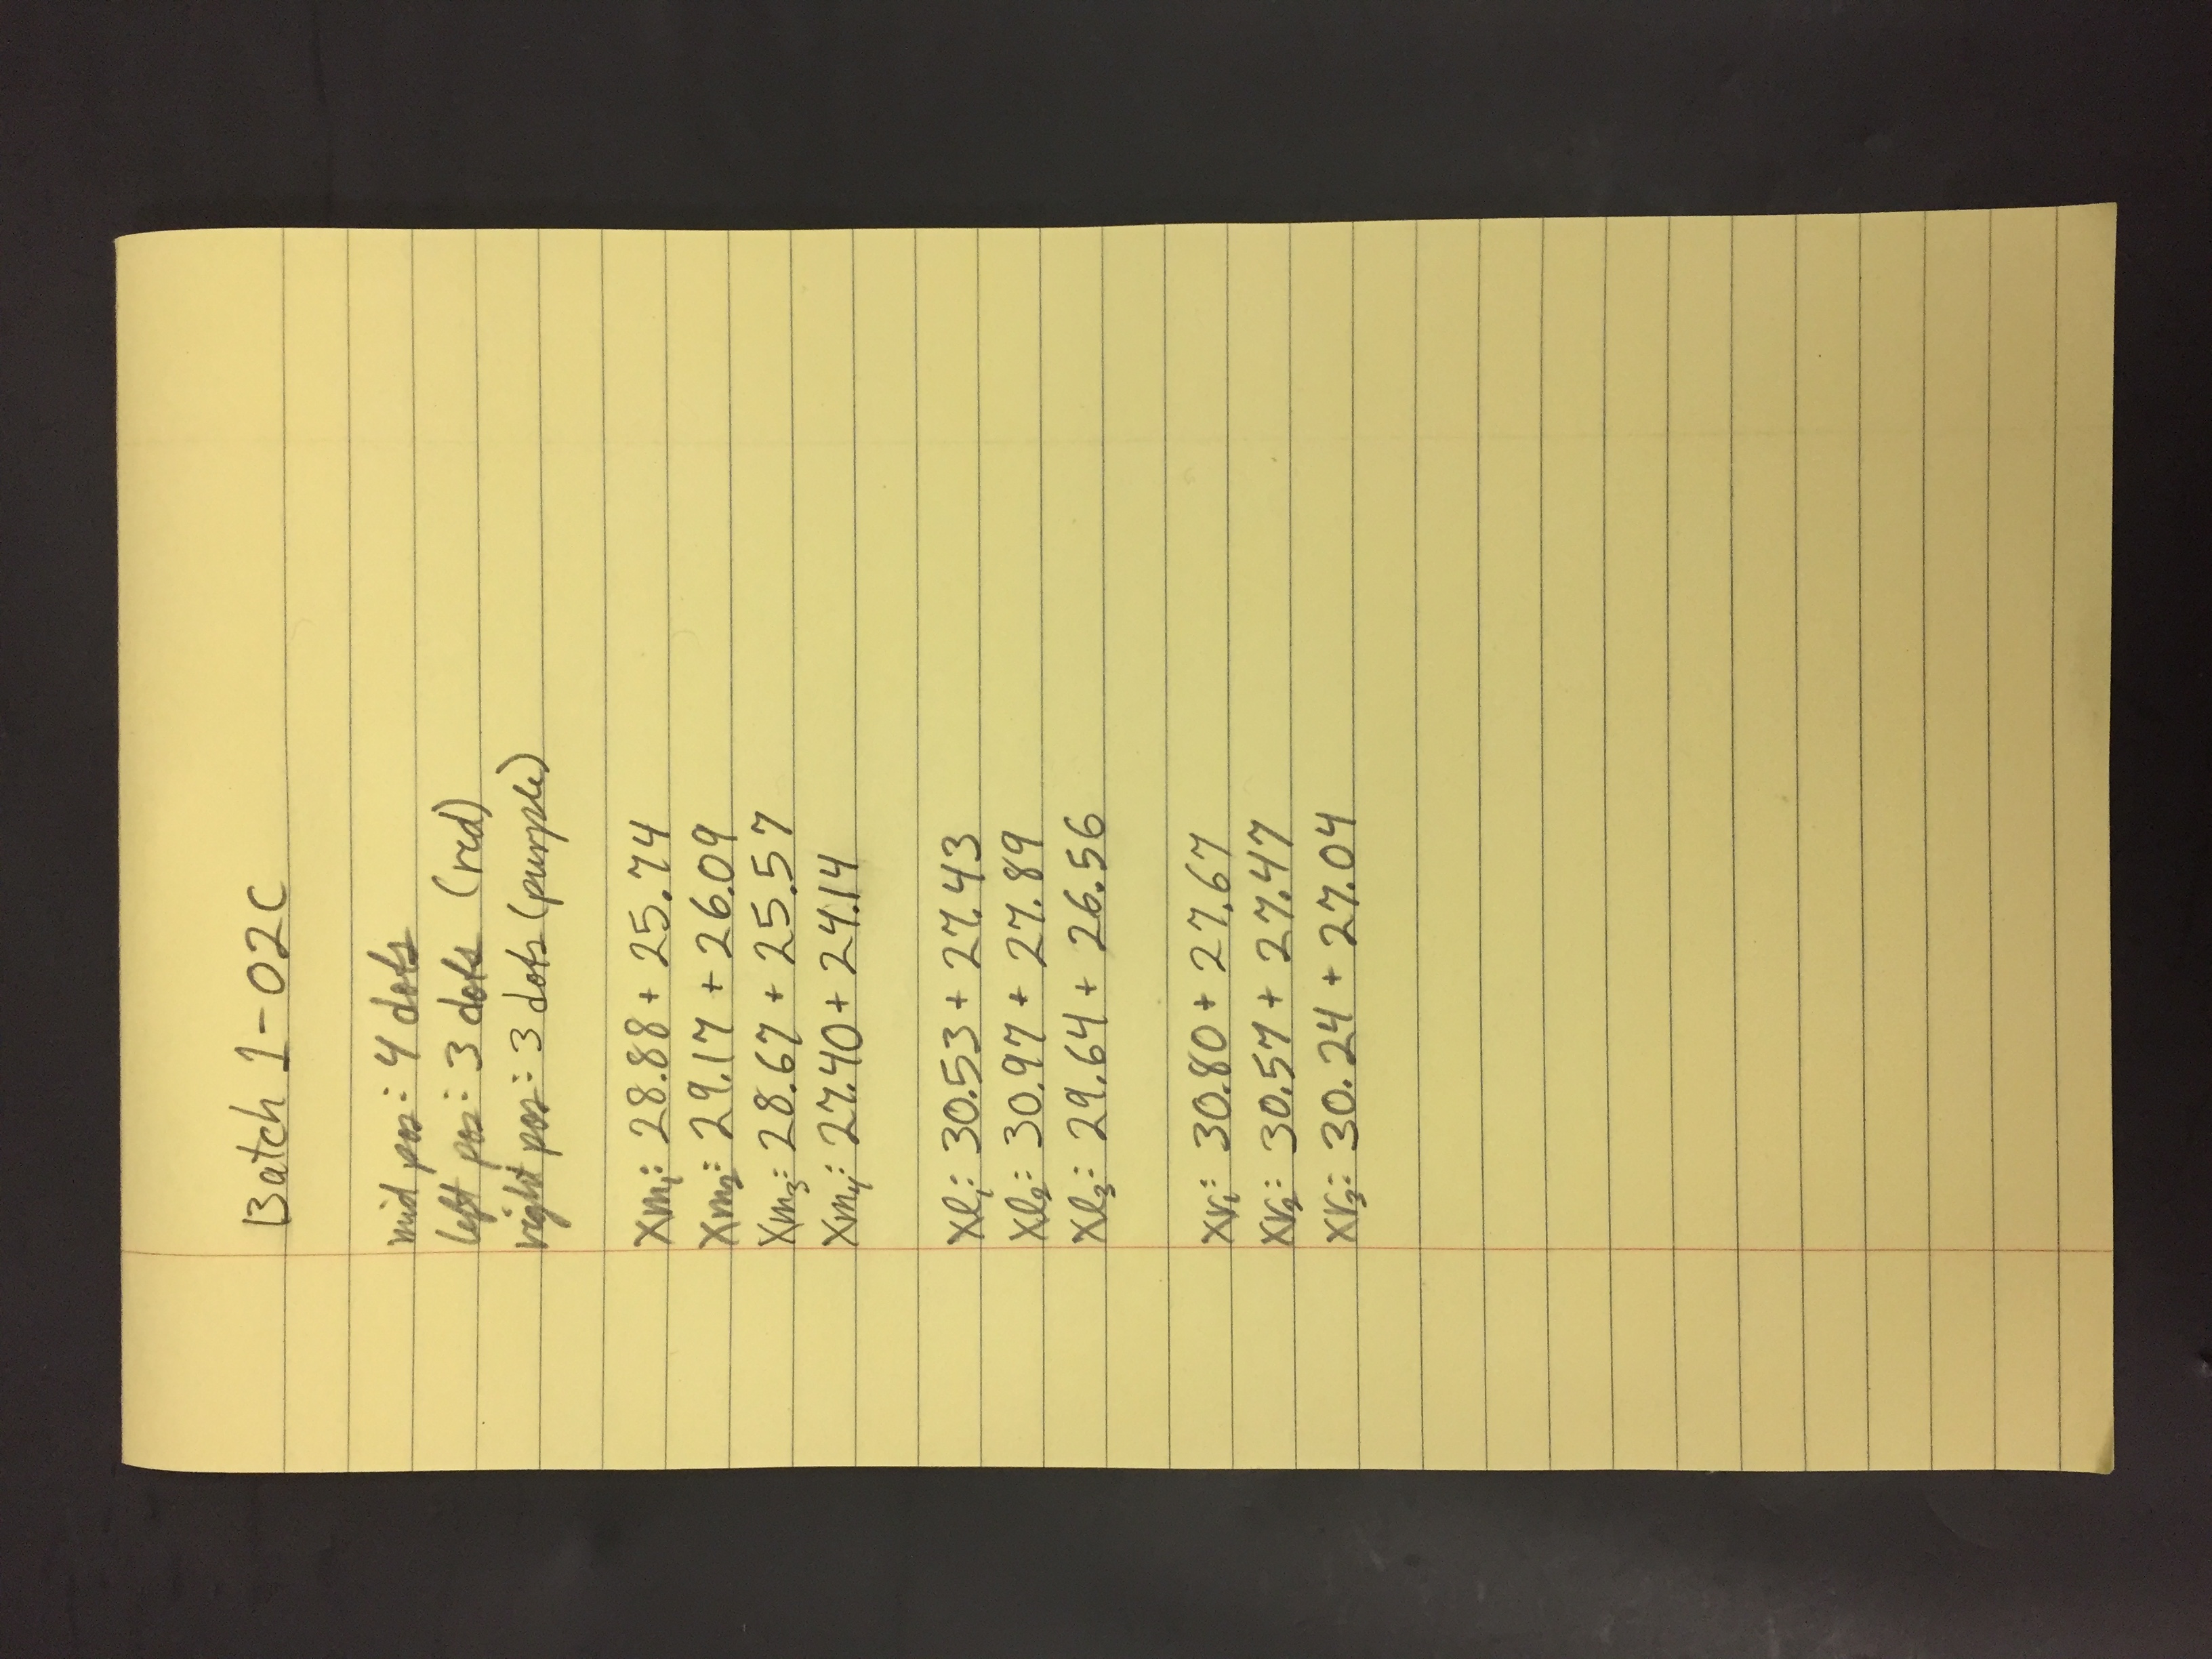 Batch 1-02C
mid pos: 4 dots
left pos: 3 dots (red)
right pos: 3 dots (purple)
Xm₁: 28.88 + 25.74
Xm₂: 29.17 + 26.09
Xm₃: 28.67 + 25.57
Xm₄: 27.40 + 24.14
Xl₁: 30.53 + 27.43
Xl₂: 30.97 + 27.89
Xl₃: 29.64 + 26.56
Xr₁: 30.80 + 27.67
Xr₂: 30.57 + 27.47
Xr₃: 30.24 + 27.04